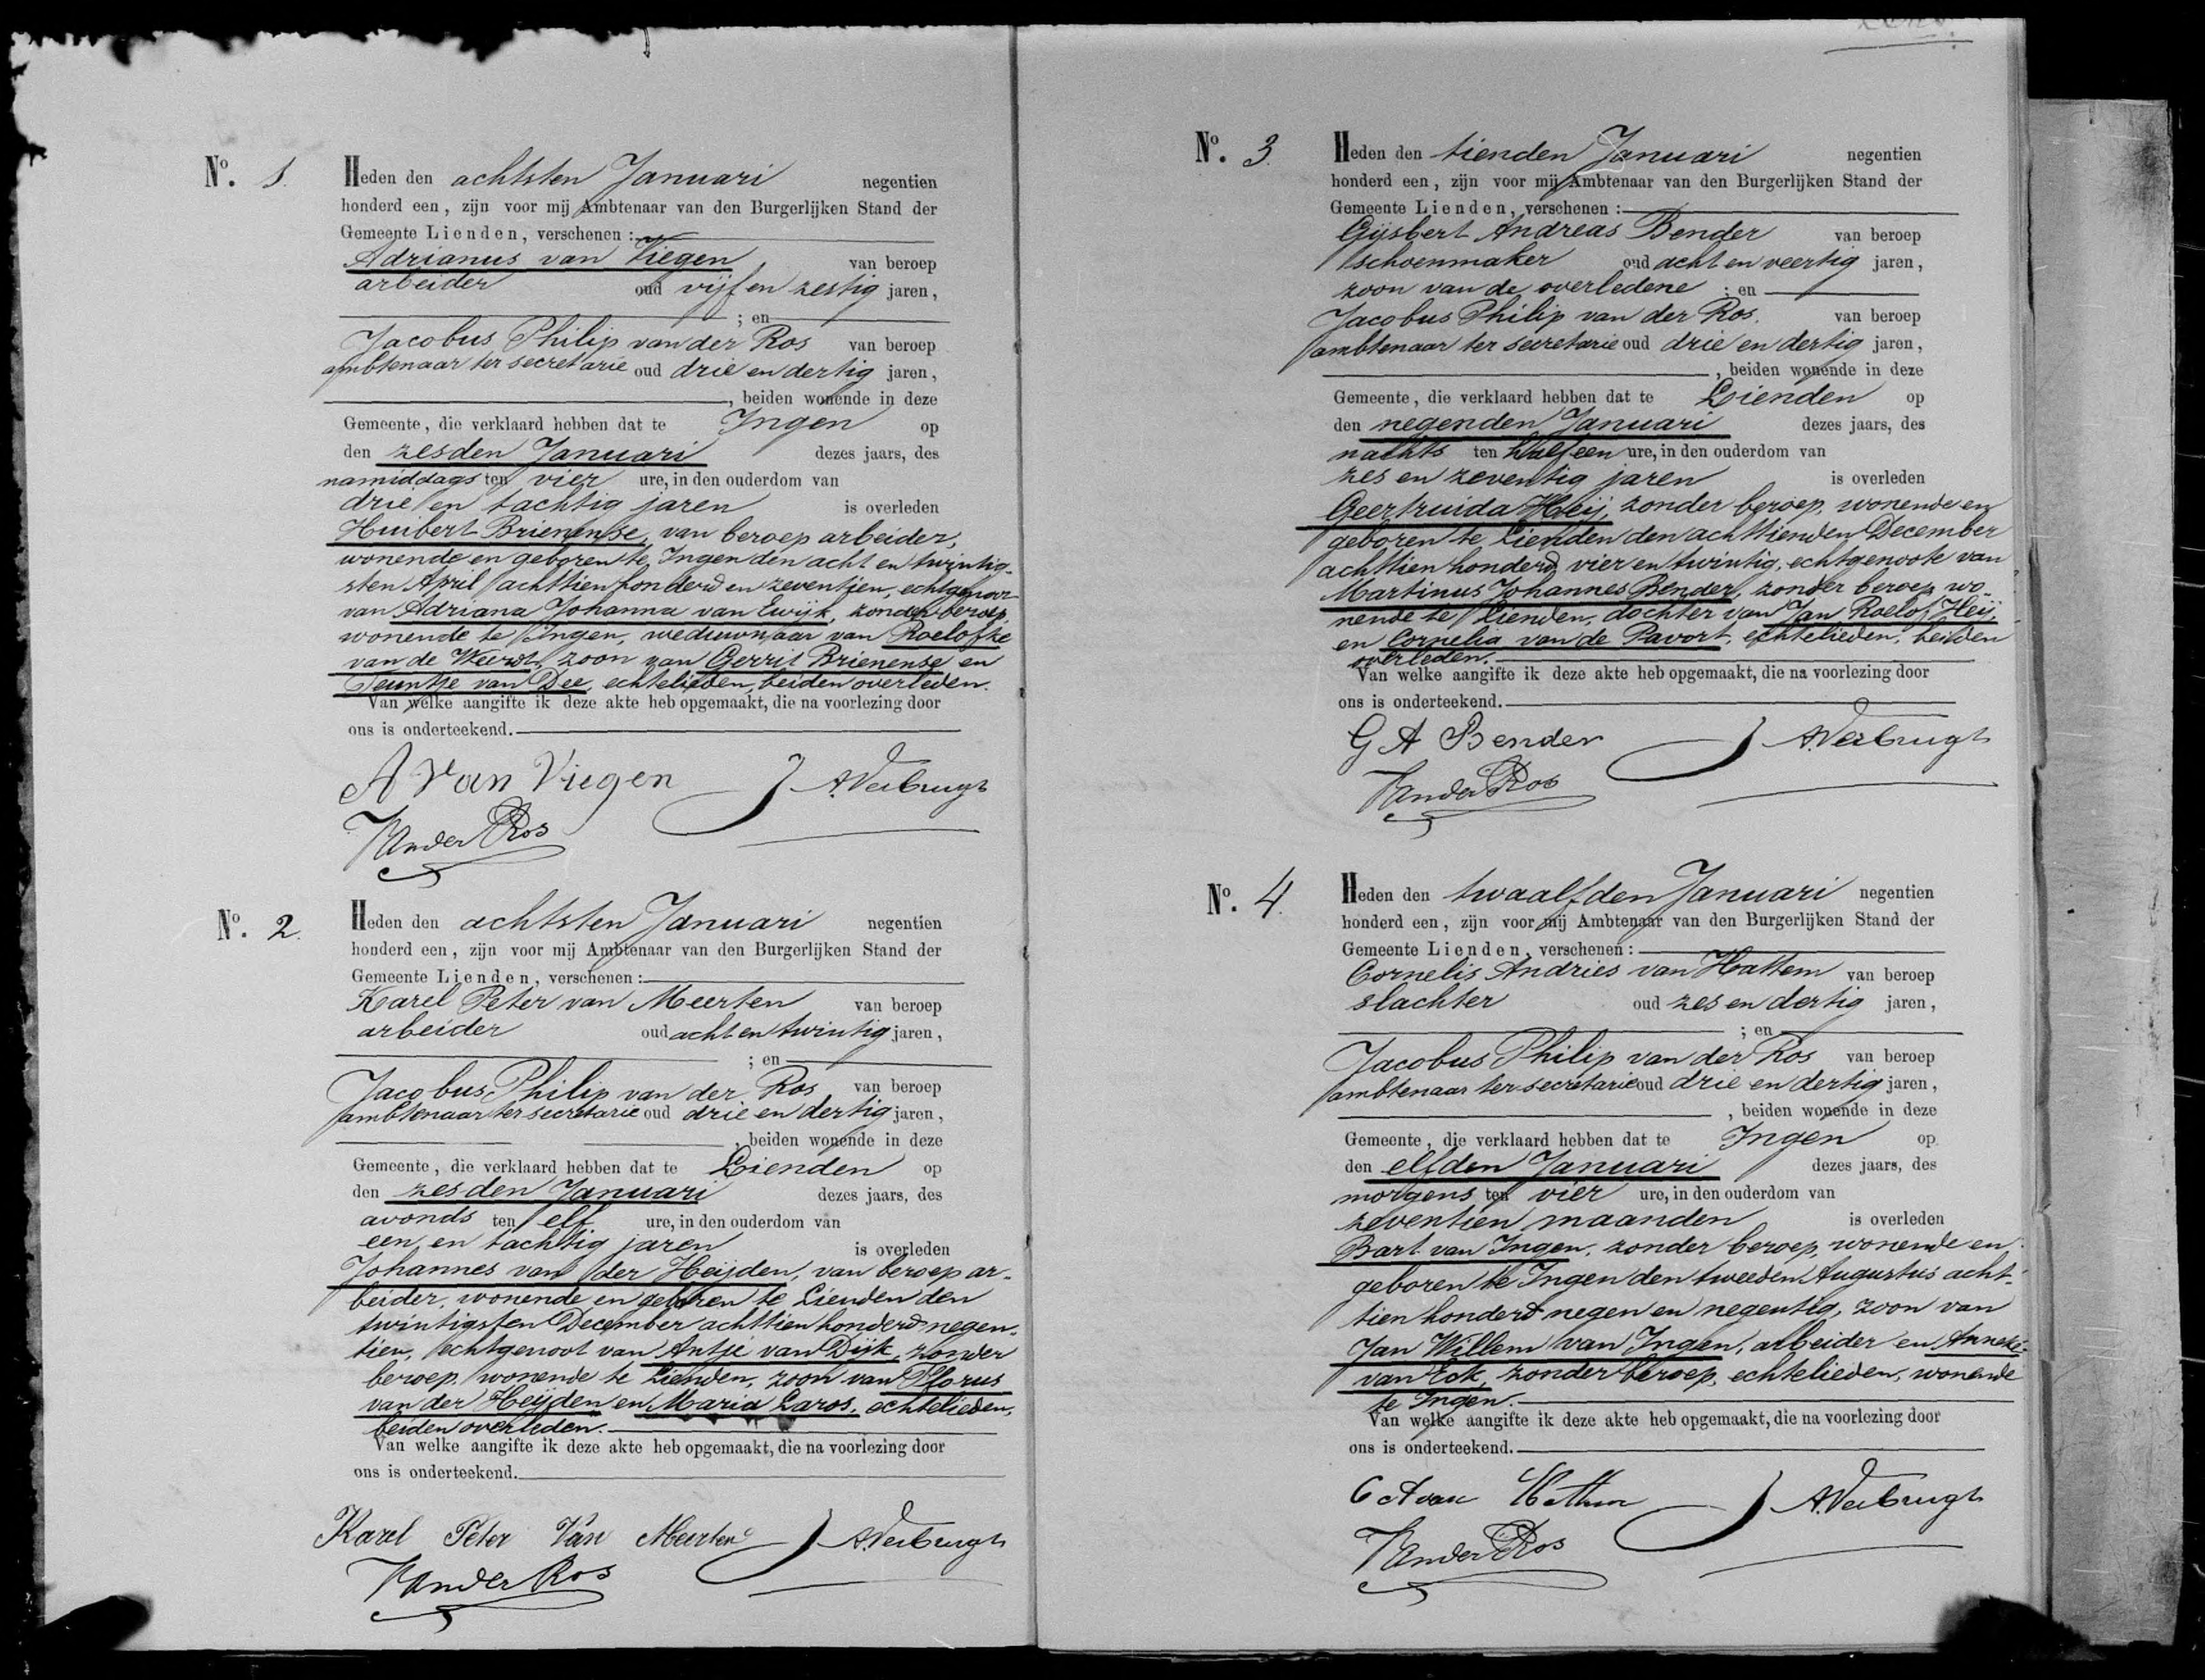 No. 1.
Heden den achtsten Januari negentien
honderd een, zijn voor mij Ambtenaar van den Burgerlijken Stand der
Gemeente Lienden, verschenen:
Adrianus van Viegen van beroep
arbeider oud vijf en zestig jaren,
; en
Jacobus Philip van der Ros van beroep
ambtenaar ter secretarie oud drie en dertig jaren,
, beiden wonende in deze
Gemeente, die verklaard hebben dat te Ingen op
den zesden Januari dezes jaars, des
namiddags ten vier ure, in den ouderdom van
drie en tachtig jaren is overleden
Huibert Brienense, van beroep arbeider,
wonende en geboren te Ingen den acht en twintig-
sten April achttien honderd en zeventien, echtgenoot
van Adriana Johanna van Ewijk, zonder beroep,
wonende te Ingen, weduwnaar van Roelofke
van de Weerdt, zoon van Gerrit Brienense en
Teuntje van Dee, echtelieden, beiden overleden.
Van welke aangifte ik deze akte heb opgemaakt, die na voorlezing door
ons is onderteekend.
A Van Viegen A. Verbrugh
Van der Ros
No. 2.
Heden den achtsten Januari negentien
honderd een, zijn voor mij Ambtenaar van den Burgerlijken Stand der
Gemeente Lienden, verschenen:
Karel Peter van Meerten van beroep
arbeider oud acht en twintig jaren,
; en
Jacobus Philip van der Ros van beroep
ambtenaar ter secretarie oud drie en dertig jaren,
, beiden wonende in deze
Gemeente, die verklaard hebben dat te Lienden op
den zesden Januari dezes jaars, des
avonds ten elf ure, in den ouderdom van
een en tachtig jaren is overleden
Johannes van der Heijden, van beroep ar-
beider, wonende en geboren te Lienden den
twintigsten December achttien honderd negen-
tien, echtgenoot van Antje van Dijk, zonder
beroep, wonende te Lienden, zoon van Florus
van der Heijden en Maria Laros, echtelieden,
beiden overleden.
Van welke aangifte ik deze akte heb opgemaakt, die na voorlezing door
ons is onderteekend.
Karel Peter Van Meerten A. Verbrugh
Van der Ros
No. 3.
Heden den tienden Januari negentien
honderd een, zijn voor mij Ambtenaar van den Burgerlijken Stand der
Gemeente Lienden, verschenen:
Gijsbert Andreas Bender van beroep
schoenmaker oud acht en veertig jaren,
zoon van de overledene ; en
Jacobus Philip van der Ros, van beroep
ambtenaar ter secretarie oud drie en dertig jaren,
, beiden wonende in deze
Gemeente, die verklaard hebben dat te Lienden op
den negenden Januari dezes jaars, des
nachts ten half een ure, in den ouderdom van
zes en zeventig jaren is overleden
Geertruida Heij, zonder beroep, wonende en
geboren te Lienden den achttienden December
achttien honderd vier en twintig, echtgenoote van
Martinus Johannes Bender, zonder beroep, wo-
nende te Lienden, dochter van Jan Roelof Heij,
en Cornelia van de Pavort, echtelieden, beiden
overleden.
Van welke aangifte ik deze akte heb opgemaakt, die na voorlezing door
ons is onderteekend.
G A Bender A. Verbrugh
Van der Ros
No. 4.
Heden den twaalfden Januari negentien
honderd een, zijn voor mij Ambtenaar van den Burgerlijken Stand der
Gemeente Lienden, verschenen:
Cornelis Andries van Hattem van beroep
slachter oud zes en dertig jaren,
; en
Jacobus Philip van der Ros van beroep
ambtenaar ter secretarie oud drie en dertig jaren,
, beiden wonende in deze
Gemeente, die verklaard hebben dat te Ingen op
den elfden Januari dezes jaars, des
morgens ten vier ure, in den ouderdom van
zeventien maanden is overleden
Bart van Ingen, zonder beroep, wonende en
geboren te Ingen den tweeden Augustus acht-
tien honderd negen en negentig, zoon van
Jan Willem van Ingen, arbeider en Anneke
van Eck, zonder beroep, echtelieden, wonende
te Ingen.
Van welke aangifte ik deze akte heb opgemaakt, die na voorlezing door
ons is onderteekend.
C A van Hattem A. Verbrugh
Van der Ros